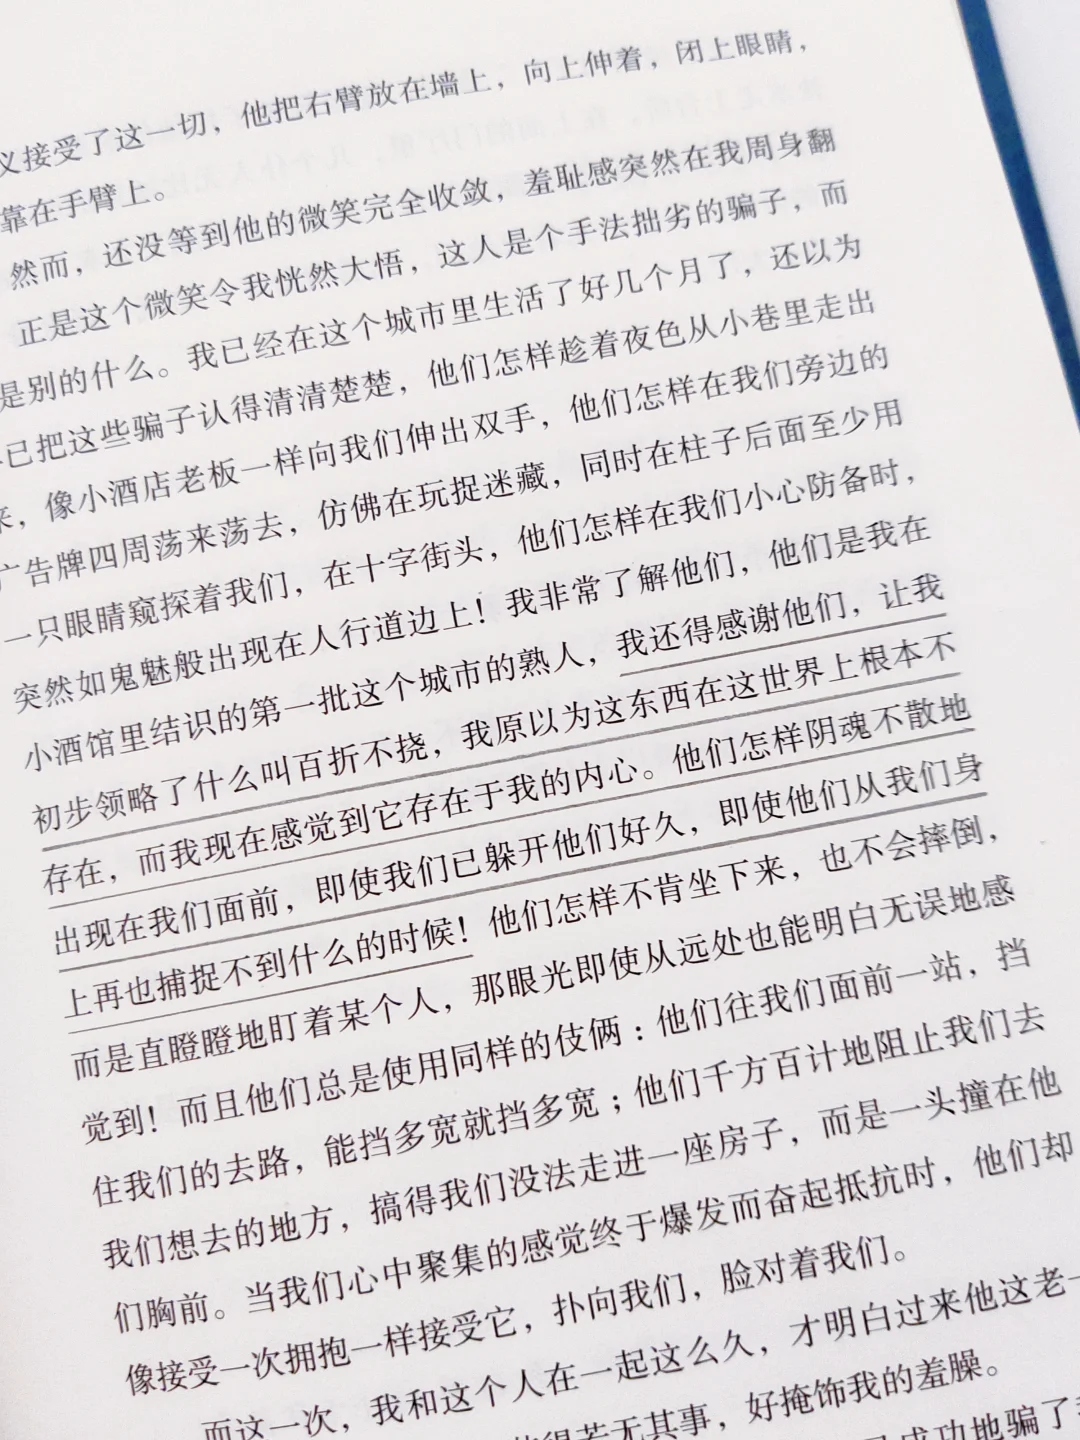 义接受了这一切，他把右臂放在墙上，向上伸着，闭上眼睛，
靠在手臂上。
然而，还没等到他的微笑完全收敛，羞耻感突然在我周身翻
正是这个微笑令我恍然大悟，这人是个手法拙劣的骗子，而
是别的什么。我已经在这个城市里生活了好几个月了，还以为
已把这些骗子认得清清楚楚，他们怎样趁着夜色从小巷里走出
来，像小酒店老板一样向我们伸出双手，他们怎样在我们旁边的
广告牌四周荡来荡去，仿佛在玩捉迷藏，同时在柱子后面至少用
一只眼睛窥探着我们，在十字街头，他们怎样在我们小心防备时，
突然如鬼魅般出现在人行道边上！我非常了解他们，他们是我在
小酒馆里结识的第一批这个城市的熟人，我还得感谢他们，让我
初步领略了什么叫百折不挠，我原以为这东西在这世界上根本不
存在，而我现在感觉到它存在于我的内心。他们怎样阴魂不散地
出现在我们面前，即使我们已躲开他们好久，即使他们从我们身
上再也捕捉不到什么的时候！他们怎样不肯坐下来，也不会摔倒，
而是直瞪瞪地盯着某个人，那眼光即使从远处也能明白无误地感
觉到！而且他们总是使用同样的伎俩：他们往我们面前一站，挡
住我们的去路，能挡多宽就挡多宽；他们千方百计地阻止我们去
我们想去的地方，搞得我们没法走进一座房子，而是一头撞在他
们胸前。当我们心中聚集的感觉终于爆发而奋起抵抗时，他们却
像接受一次拥抱一样接受它，扑向我们，脸对着我们。
而这一次，我和这个人在一起这么久，才明白过来他这老一
得若无其事，好掩饰我的羞臊。
成功地骗了